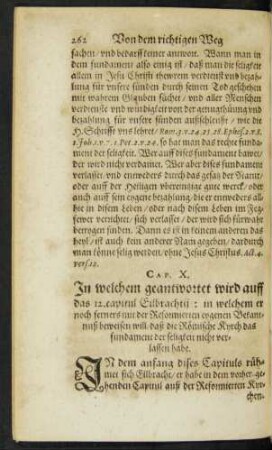 262 Von dem richtigen Weg
sachen / und bedarff keiner antwort. Wann man in
dem fundament also einig ist / daß man die seligkeit
allein in Jesu Christi thewrem verdienst und bezah-
lung für unsere sünden durch seinen Tod geschehen
mit wahrem Glauben suchet / und aller Menschen
verdienste und würdigkeit von der genugthuung und
bezahlung für unsere sünden außschleust / wie die
H. Schrifft uns lehret / Rom. 3. v. 24. 25. 28. Ephes. 2. v. 8.
1. Joh. 1. v. 7. 1. Pet. 2. v. 24. so hat man das rechte funda-
ment der seligkeit. Wer auff dises fundament bawet /
der wird nicht verdamet. Wer aber dises fundament
verlasset / und entweders durch das gesatz der Natur /
oder auff der Heiligen übereggelegte wercke / oder
auch auff sein eygene bezahlung / die er entweders all-
hie in disem Leben / oder nach disem Leben im Feg-
fewer verrichtet / sich verlasset / der wird sich fürwahr
betrogen finden. Dann es ist in keinem anderen das
heyl / ist auch kein anderer Nam gegeben / dardurch
man könne selig werden / ohne Jesus Christus. Act. 4.
vers. 12.
CAP. X.
In welchem geantwortet wird auff
das 12. capitul Eilbrachtij : in welchem er
noch ferners mit der Reformierten eygenen Bekant-
nuß beweisen will / daß die Römische Kyrch das
fundament der seligkeit nicht ver-
lassen habe.
IN dem anfang dises Capituls rüh-
met sich Eilbracht / er habe in dem vorher-ge-
henden Capitul auß der Reformierten Kyr-
chen